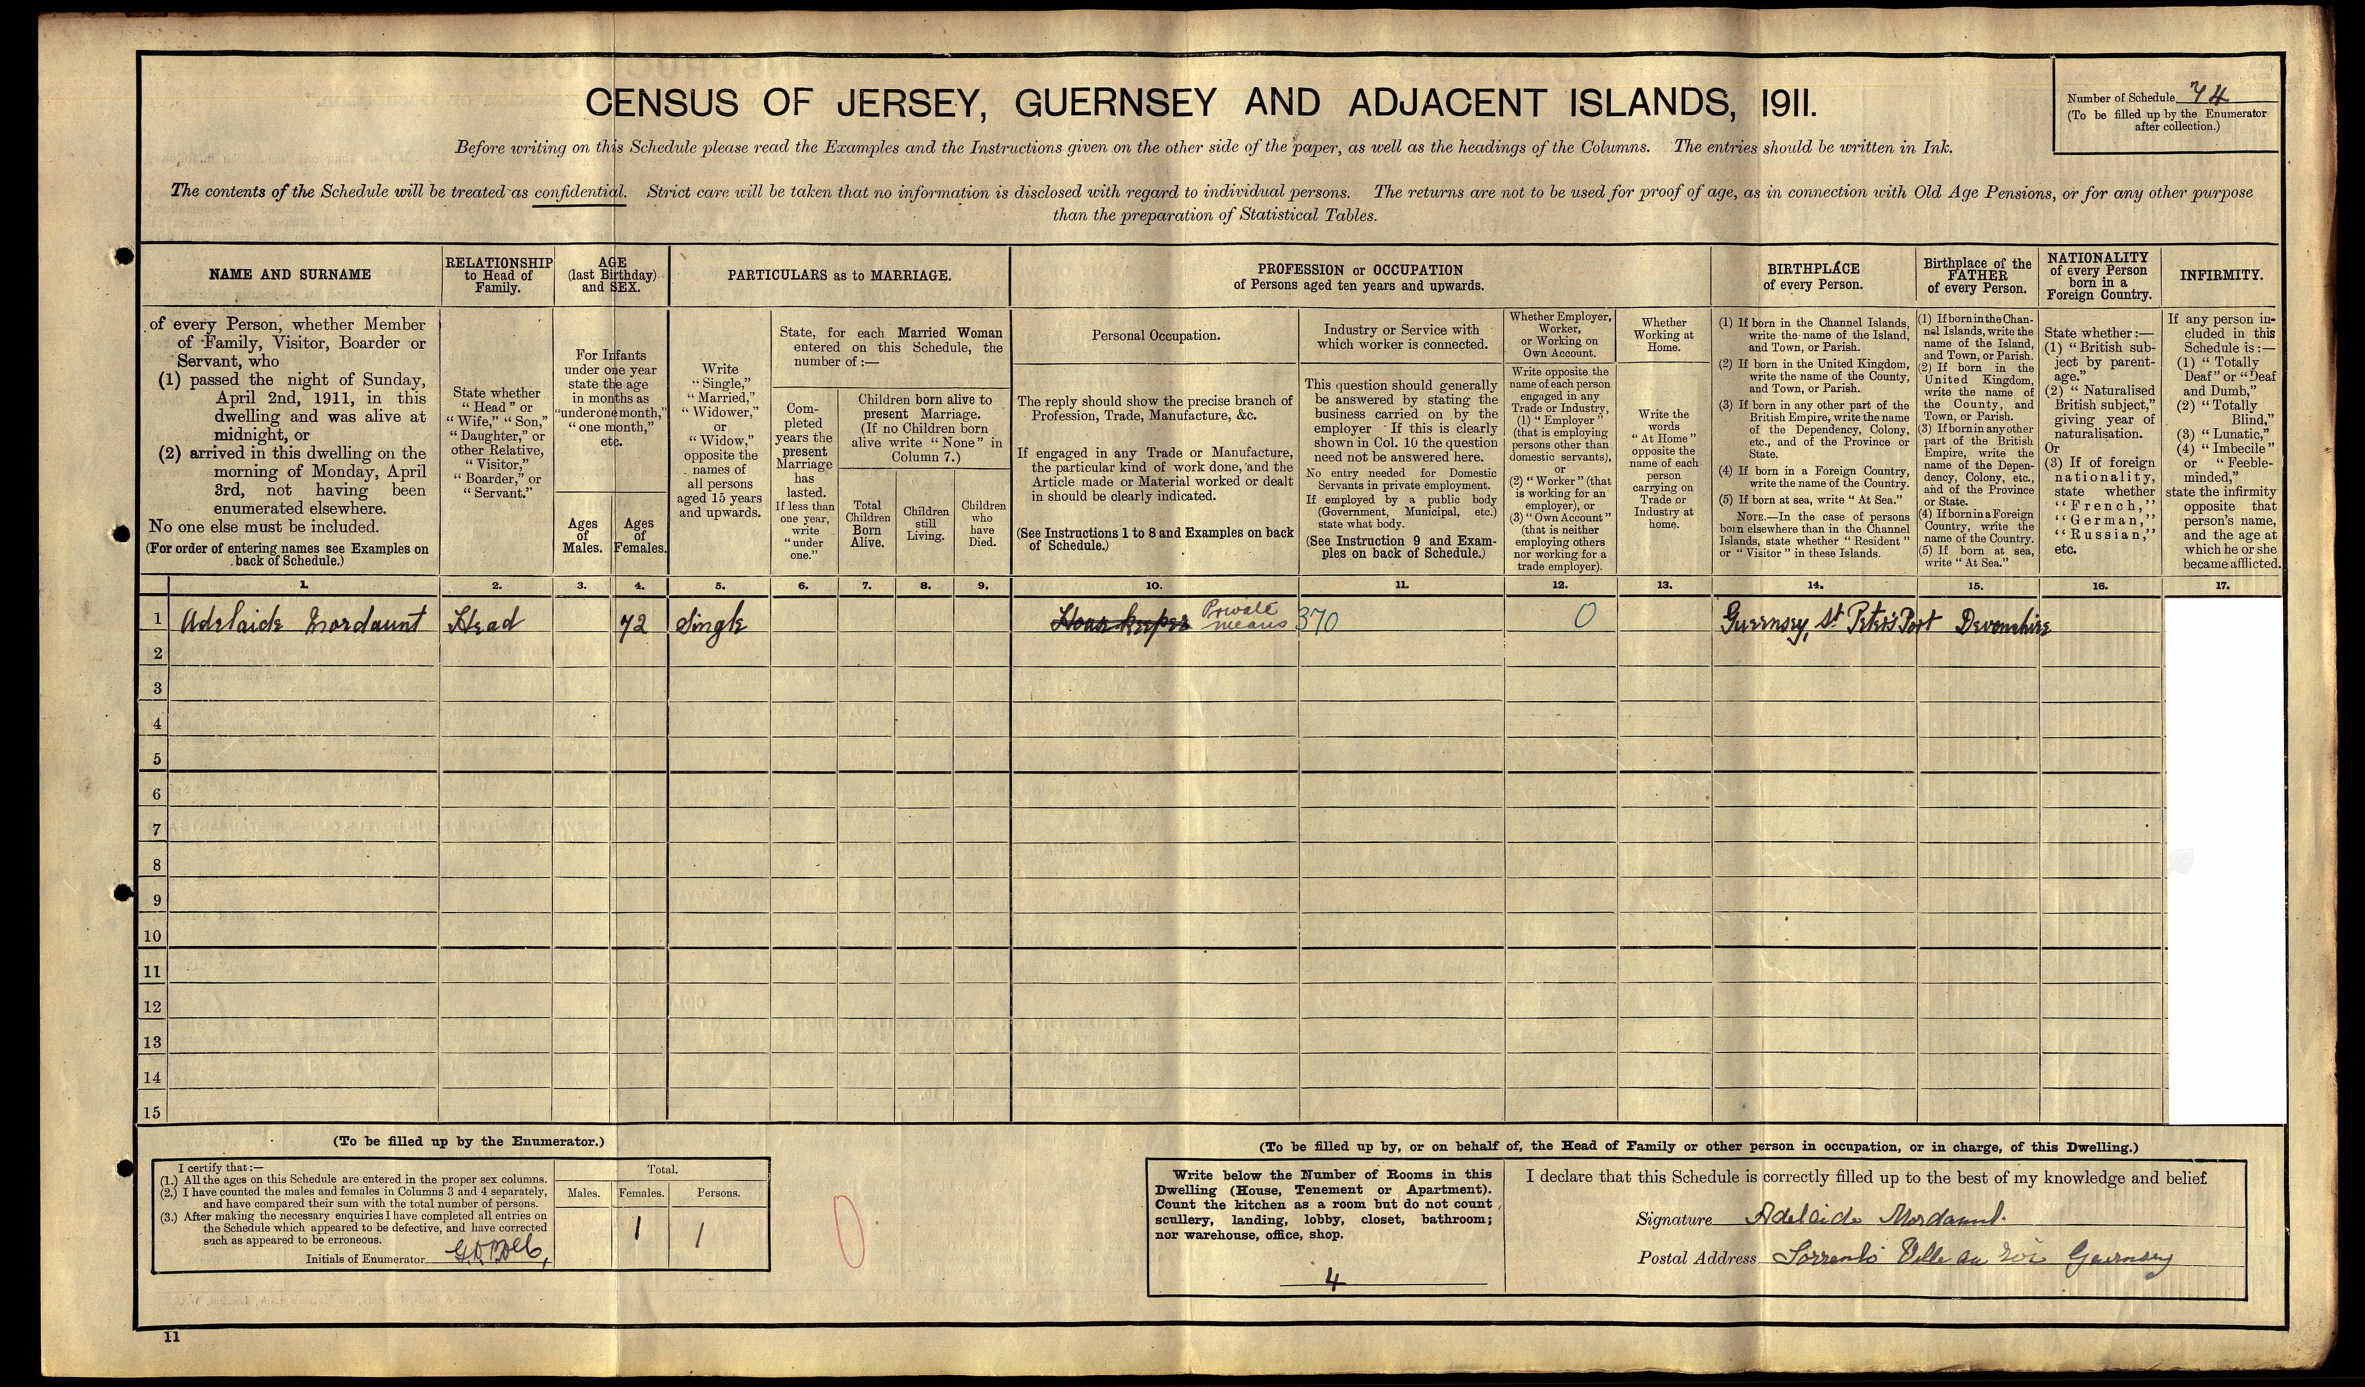 CENSUS OF JERSEY, GUERNSEY AND ADJACENT ISLANDS, 1911.
Number of Schedule 74
(To be filled up by the Enumerator
after collection.)
Before writing on this Schedule please read the Examples and the Instructions given on the other side of the paper, as well as the headings of the Columns. The entries should be written in Ink.
The contents of the Schedule will be treated as confidential. Strict care will be taken that no information is disclosed with regard to individual persons. The returns are not to be used for proof of age, as in connection with Old Age Pensions, or for any other purpose
than the preparation of Statistical Tables.
NAME AND SURNAME
of every Person, whether Member
of Family, Visitor, Boarder or
Servant, who
(1) passed the night of Sunday,
April 2nd, 1911, in this
dwelling and was alive at
midnight, or
(2) arrived in this dwelling on the
morning of Monday, April
3rd, not having been
enumerated elsewhere.
No one else must be included.
(For order of entering names see Examples on
back of Schedule.)
RELATIONSHIP
to Head of
Family.
State whether
"Head" or
"Wife," "Son,"
"Daughter," or
other Relative,
"Visitor,"
"Boarder," or
"Servant."
AGE
(last Birthday)
and SEX.
For Infants
under one year
state the age
in months as
"under one month,"
"one month,"
etc.
Ages
of
Males.
Ages
of
Females.
PARTICULARS as to MARRIAGE.
Write
"Single,"
"Married,"
"Widower,"
or
"Widow,"
opposite the
names of
all persons
aged 15 years
and upwards.
State, for each Married Woman
entered on this Schedule, the
number of :—
Com-
pleted
years the
present
Marriage
has
lasted.
If less than
one year,
write
"under
one."
Children born alive to
present Marriage.
(If no Children born
alive write "None" in
Column 7.)
Total
Children
Born
Alive.
Children
still
Living.
Children
who
have
Died.
PROFESSION or OCCUPATION
of Persons aged ten years and upwards.
Personal Occupation.
The reply should show the precise branch of
Profession, Trade, Manufacture, &c.
If engaged in any Trade or Manufacture,
the particular kind of work done, and the
Article made or Material worked or dealt
in should be clearly indicated.
(See Instructions 1 to 8 and Examples on back
of Schedule.)
Industry or Service with
which worker is connected.
This question should generally
be answered by stating the
business carried on by the
employer If this is clearly
shown in Col. 10 the question
need not be answered here.
No entry needed for Domestic
Servants in private employment.
If employed by a public body
(Government, Municipal, etc.)
state what body.
(See Instruction 9 and Exam-
ples on back of Schedule.)
Whether Employer,
Worker,
or Working on
Own Account.
Write opposite the
name of each person
engaged in any
Trade or Industry,
(1) "Employer"
(that is employing
persons other than
domestic servants),
or
(2) "Worker" (that
is working for an
employer), or
(3) "Own Account"
(that is neither
employing others
nor working for a
trade employer).
Whether
Working at
Home.
Write the
words
"At Home"
opposite the
name of each
person
carrying on
Trade or
Industry at
home.
BIRTHPLACE
of every Person.
(1) If born in the Channel Islands,
write the name of the Island,
and Town, or Parish.
(2) If born in the United Kingdom,
write the name of the County,
and Town, or Parish.
(3) If born in any other part of the
British Empire, write the name
of the Dependency, Colony,
etc., and of the Province or
State.
(4) If born in a Foreign Country,
write the name of the Country.
(5) If born at sea, write "At Sea."
NOTE.—In the case of persons
born elsewhere than in the Channel
Islands, state whether "Resident"
or "Visitor" in these Islands.
Birthplace of the
FATHER
of every Person.
(1) If born in the Chan-
nel Islands, write the
name of the Island,
and Town, or Parish.
(2) If born in the
United Kingdom,
write the name of
the County, and
Town, or Parish.
(3) If born in any other
part of the British
Empire, write the
name of the Depen-
dency, Colony, etc.,
and of the Province
or State.
(4) If born in a Foreign
Country, write the
name of the Country.
(5) If born at sea,
write "At Sea."
NATIONALITY
of every Person
born in a
Foreign Country.
State whether :—
(1) "British sub-
ject by parent-
age."
(2) "Naturalised
British subject,"
giving year of
naturalisation.
Or
(3) If of foreign
nationality,
state whether
"French,"
"German,"
"Russian,"
etc.
INFIRMITY.
If any person in-
cluded in this
Schedule is :—
(1) "Totally
Deaf" or "Deaf
and Dumb,"
(2) "Totally
Blind,"
(3) "Lunatic,"
(4) "Imbecile"
or "Feeble-
minded,"
state the infirmity
opposite that
person's name,
and the age at
which he or she
became afflicted.
1. 2. 3. 4. 5. 6. 7. 8. 9. 10. 11. 12. 13. 14. 15. 16. 17.
1 Adelaide Mordaunt Head 72 Single House keeper Private means 370 0 Guernsey, St Peter's Port Devonshire
2
3
4
5
6
7
8
9
10
11
12
13
14
15
(To be filled up by the Enumerator.)
I certify that :—
(1.) All the ages on this Schedule are entered in the proper sex columns.
(2.) I have counted the males and females in Columns 3 and 4 separately,
and have compared their sum with the total number of persons.
(3.) After making the necessary enquiries I have completed all entries on
the Schedule which appeared to be defective, and have corrected
such as appeared to be erroneous.
Initials of Enumerator
Total.
Males. Females. Persons.
1 1
0
(To be filled up by, or on behalf of, the Head of Family or other person in occupation, or in charge, of this Dwelling.)
Write below the Number of Rooms in this
Dwelling (House, Tenement or Apartment).
Count the kitchen as a room but do not count
scullery, landing, lobby, closet, bathroom;
nor warehouse, office, shop.
4
I declare that this Schedule is correctly filled up to the best of my knowledge and belief
Signature Adelaide Mordaunt.
Postal Address Sorrento Ville au Roi Guernsey
11